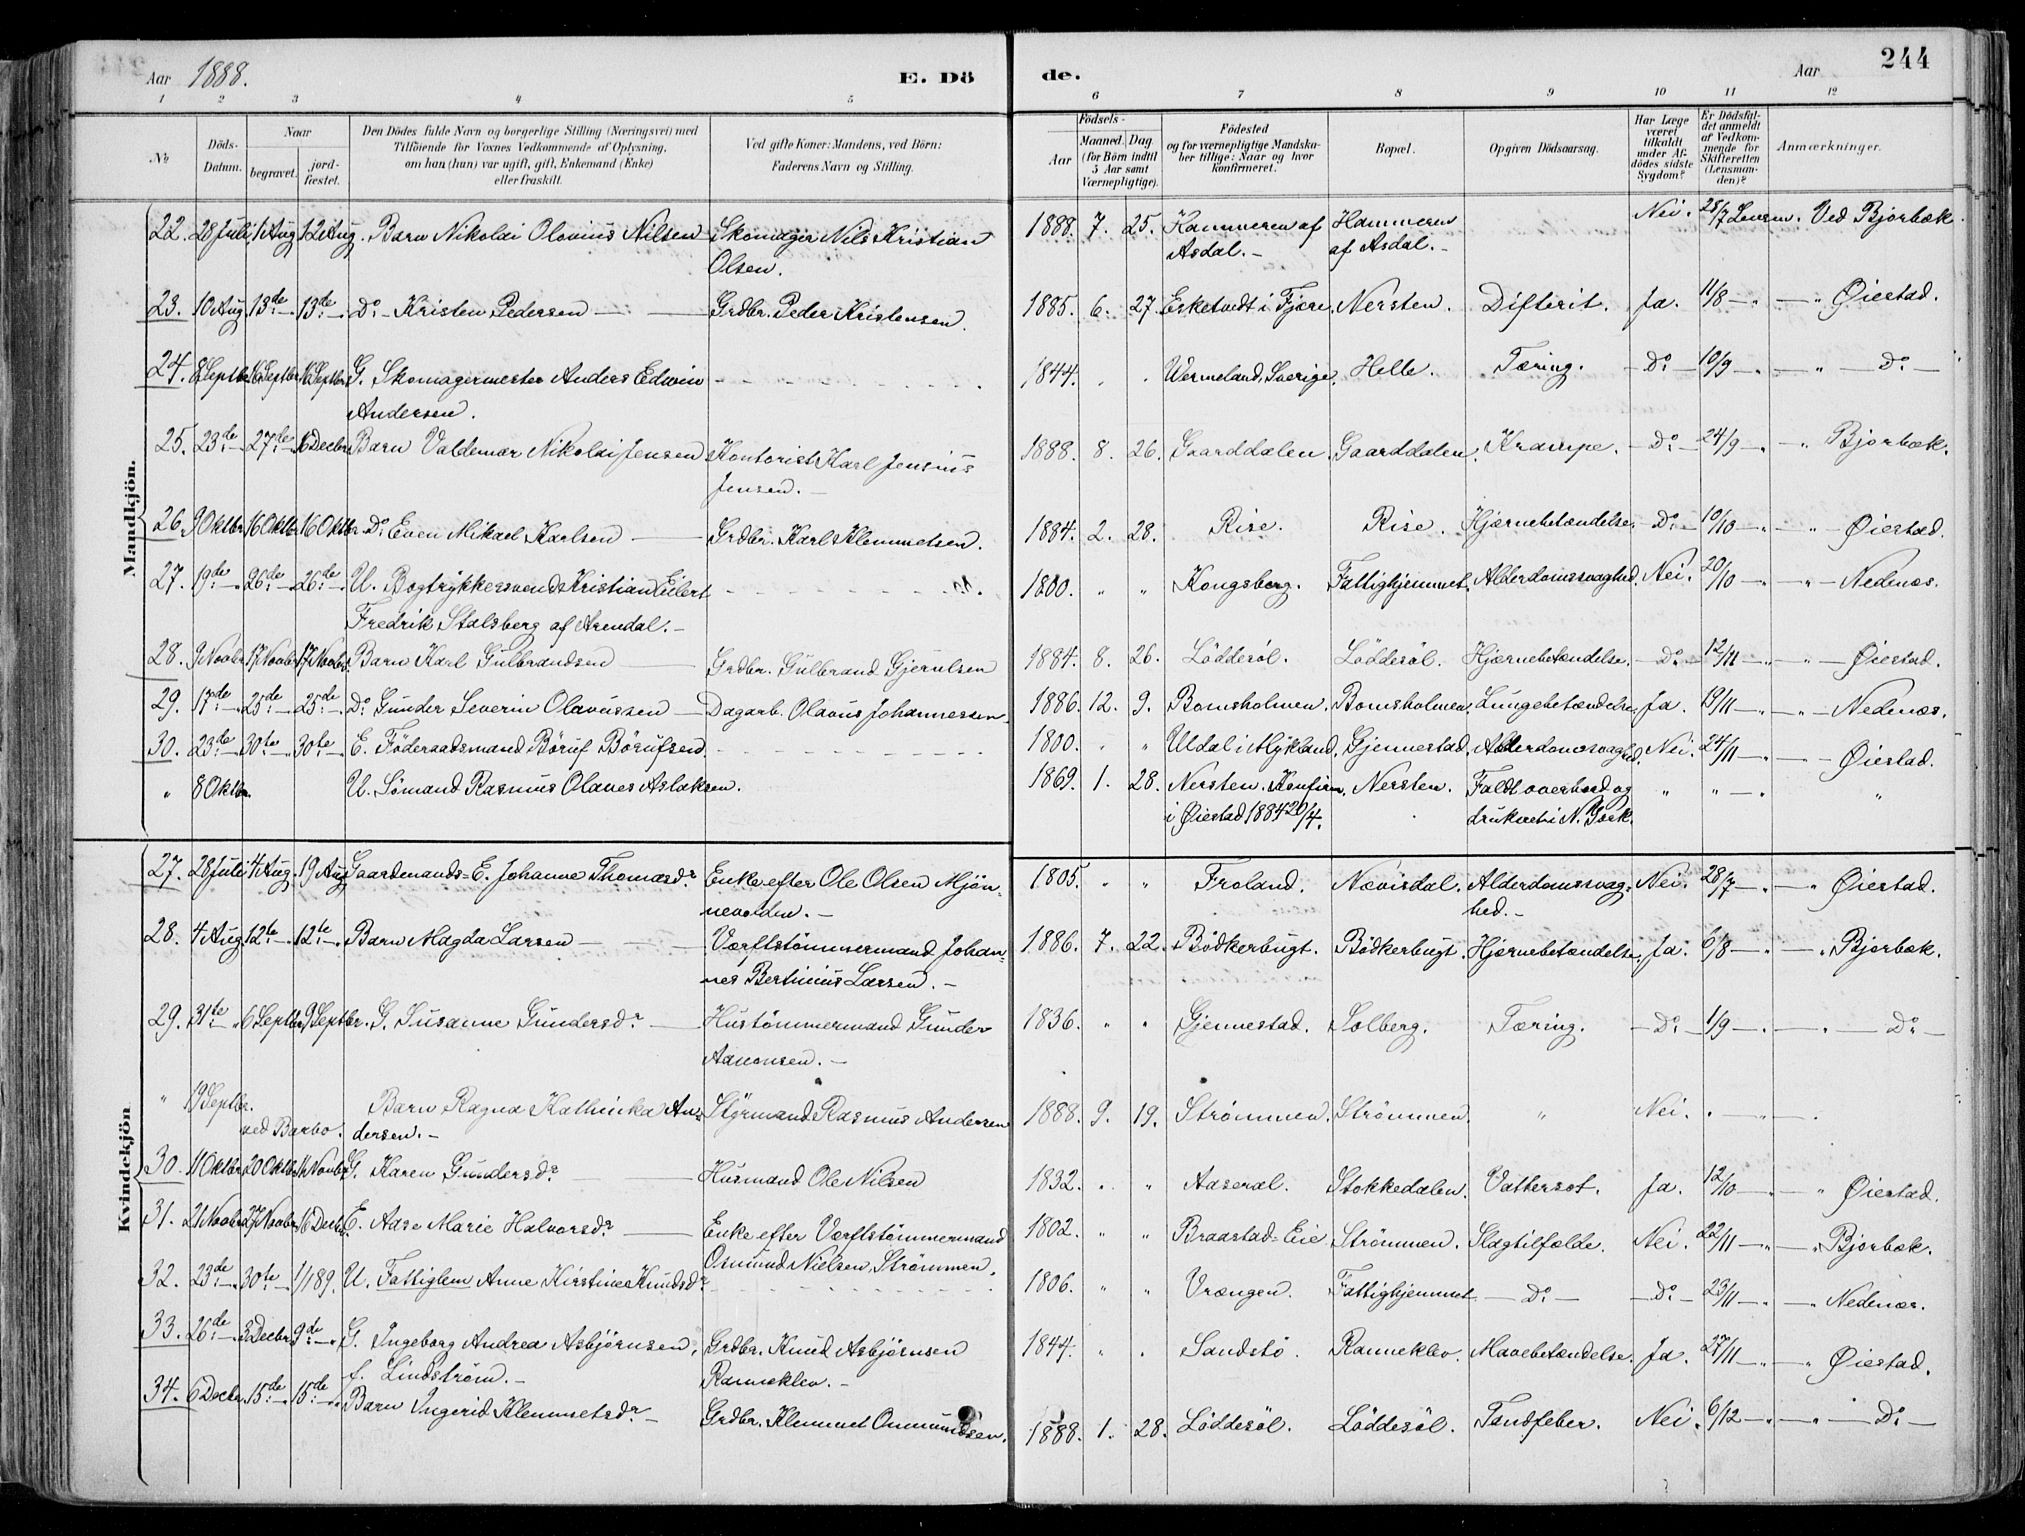 Aar 1888. E. Dö de. Aar 244
1 2 3 4 5 6 7 8 9 10 11 12
No Döds-Datum. Naar begravet. jord-fæstet. Den Dödes fulde Navn og borgerlige Stilling (Næringsvei) med Tilföiende for Voxnes Vedkommende af Oplysning, om han (hun) var ugift, gift, Enkemand (Enke) eller fraskilt. Ved gifte Koner: Mandens, ved Börn: Faderens Navn og Stilling. Födsels- Aar Maaned. Dag (for Börn indtil 5 Aar samt Værnepligtige). Födested og for værnepligtige Mandska-ber tillige: Naar og hvor konfirmeret. Bopæl. Opgiven Dödsaarsag. Har Læge været tilkaldt under Af-dödes sidste Sygdom? Er Dödsfal-det anmeldt af Vedkom-mende for Skifteretten (Lensman-den)? Anmærkninger.
Mandkjön.
22. 28 Juli 1 Aug 12 Aug. Barn Nikolai Olavius Nilsen Skomager Nils Kristian 1888. 7. 25. Hammeren af Hammeren Nei. 28/7 Lensm. Ved Bjorbæk.
Olsen. Asdal. – af Asdal. –
23. 10 Aug. 13de 13de Do – Kristen Pedersen Grdbr. Peder Kristensen. 1885. 6. 27. Esketvedt i Fjære. Nersten. Difterit. Ja. 11/8 – " – " Øiestad.
24. 8 Septbr. 16 Septbr. 16 Septbr. G. Skomagermester Anders Edwin 1844. " " Wermeland, Sverige. Helle. Tæring. – Do – 10/9 – " – " – Do –
Andersen.
25. 23de 27de 16 Decbr. Barn Valdemar Nikolai Jensen Kontorist Karl Jensius 1888. 8. 26. Gaarddalen. Gaarddalen. Krampe. – Do – 24/9 – " – " Bjorbæk.
Jensen. –
26. 9 Oktbr. 16 Oktbr. 16 Oktbr. Do. Even Mikael Karlsen Grdbr. Karl Klemmetsen. 1884. 2. 28. Rise. Rise. Hjærnebetændelse. – Do – 10/10 – " – " Øiestad.
27. 19de 26de 26de U. Bogtrykkersvend Kristian Eilert 1800. " " Kongsberg. Fattighjemmet. Alderdomssvaghed. Nei. 20/10 – " – " – Nedenæs.
Fredrik Stalsberg af Arendal. –
28. 9 Novbr. 17 Novbr. 17 Novbr. Barn Karl Gulbrandsen Grdbr. Gulbrand Gjerulsen 1884. 8. 26. Löddesöl. Löddesöl. Hjærnebetændelse. – Do – 12/11 – " – " – Øiestad.
29. 17de 25de 25de Do. Gunder Severin Olavussen Dagarb. Olavus Johannessen. 1886. 12. 9. Bomsholmen. Bomsholmen. Lungebetændelse. Ja. 19/11 – " – " – Nedenæs.
30. 23de 30te 30te E. Föderaadsmand Böruf Börufsen. 1800. " " Uldal i Mykland. Gjennestad. Alderdomssvaghed. Nei. 24/11 – " – " – Øiestad.
" 8 Oktbr. U. Sömand Rasmus Olaves Aslaksen. 1869. 1. 28. Nersten. Konfirm. Nersten. Faldt overbord og " " – " "
i Øiestad 1884 20/4. druknet i N. York.
Kvindekjön
27. 28 Juli 4 Aug. 19 Aug. Gaardmands=E. Johanne Thomasdr. Enke efter Ole Olsen Mjön- 1805. " " Froland. Nævisdal. Alderdomssvag- Nei. 28/7 – " – " Øiestad.
nevolden. – hed. –
28. 4 Aug. 12te 12te Barn Magda Larsen Værftstömmermand Johan- 1886. 7. 22. Bödkerbugt. Bödkerbugt. Hjærnebetændelse. Ja. 6/8 – " – " Bjorbæk.
nes Bertinius Larsen. –
29. 31te 6 Septbr. 9 Septbr. G. Susanne Gundersdr. Hustömmermand Gunder 1836. " " Gjennestad. Solberg. Tæring. – Do – 1/9 – " – " – Do –
Aanonsen. –
" 19 Septbr. Barn Ragna Kathinka An- Styrmand Rasmus Andersen 1888. 9. 19. Strömmen. Strömmen. " Nei. " – " – "
ved Barbo. dersen. –
30. 11 Oktbr. 20 Oktbr. 11 Novbr. G. Karen Gundersdr. Husmand Ole Nilsen 1832. " " Aaseral. Stokkedalen. Vattersot. Ja. 12/10 – " – " Øiestad.
31. 21 Novbr. 27 Novbr. 16 Decbr. E. Aase Marie Halvorsdr. Enke efter Værftstömmermand 1802. " " Braastad=Eie Strömmen. Slagtilfælde. Nei. 22/11 – " – " Bjorbæk.
Osmund Nielsen, Strömmen.
32. 23de 30te 1/1 89. U. Fattiglem Anne Kirstine Knudsdr. 1806. " " Vrængen. Fattighjemmet – Do – – Do – 23/11 – " – Nedenæs.
33. 26de 3 Decbr. 9de G. Ingeborg Andrea Asbjørnsen, Grdbr. Knud Asbjørnsen 1844. " " Sandstö. Ranneklev. Mavebetændelse. Ja. 27/11 – " – " Øiestad.
f. Lindström. – Ranneklev. –
34. 6 Decbr. 15de 15de Barn Ingerid Klemmetsdr. – Grdbr. Klemmet Onmundsen. 1888. 1. 28. Löddesöl. Löddesöl. Tandfeber. Nei. 6/12 – " – " – Do –